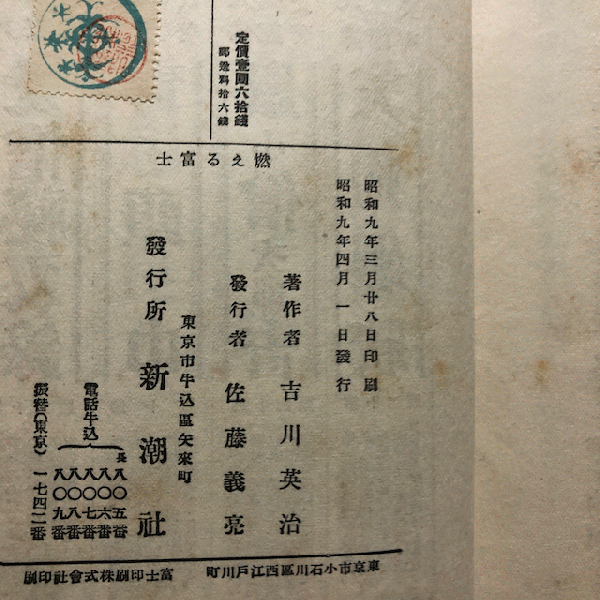 定價壹圓六拾錢
郵送料拾六錢
燃える富士
昭和九年三月廿八日印刷
昭和九年四月一日發行
著作者 吉川英治
發行者 佐藤義亮
東京市牛込區矢來町
發行所 新潮社
電話牛込
長八〇五番
八〇六番
八〇七番
八〇八番
八〇九番
振替(東京)一七四二番
東京市小石川區西江戶川町
富士印刷株式會社印刷